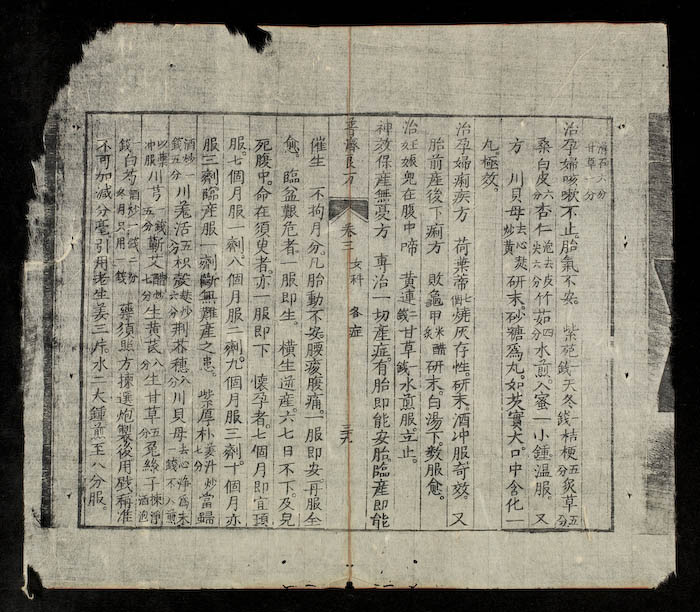 滑石六分
甘草一分
治孕婦咳嗽不止胎氣不安。 紫菀一錢天冬一錢桔梗五分炙草五分
桑白皮六分杏仁泡去皮尖六分竹茹四分水煎。入蜜一小鍾温服。又
方 川貝母去心麩炒黃研末。砂糖爲丸。如芡實大。口中含化一
丸。極效。
治孕婦痢疾方 荷葉蒂七個燒灰存性。研末。酒冲服奇效。又
胎前產後下痢方 敗龜甲米醋炙研末。白湯下。數服愈。
治妊娠兒在腹中啼 黃連一錢甘草一錢水煎服。立止。
神效保產無憂方 專治一切產症。有胎即能安胎臨產即能
普濟良方 卷三 女科 各症
催生 不拘月分。凡胎動不安。腰痠腹痛。一服即安。再服全
愈。臨盆艱危者。一服即生。橫生逆產。六七日不下。及兒
死腹中。命在須臾者。亦一服即下 懷孕者。七個月即宜預
服。七個月服一劑。八個月服二劑。九個月服三劑。十個月亦
服三劑。臨產服一劑。斷無難產之患。 紫厚朴姜汁炒七分當歸
酒炒一錢五分川羌活五分枳殼麩炒六分荆芥穗八分川貝母去心淨爲末一錢不入煎
以藥冲服川芎一錢五分蘄艾醋炒七分生黃芪八分生甘草五分兔絲子揀淨酒泡
錢白芍酒炒一錢二分冬月只用一錢 藥須照方揀選炮製後用戥稱准
不可加減分毫引用老生姜三片水二大鍾煎至八分服。